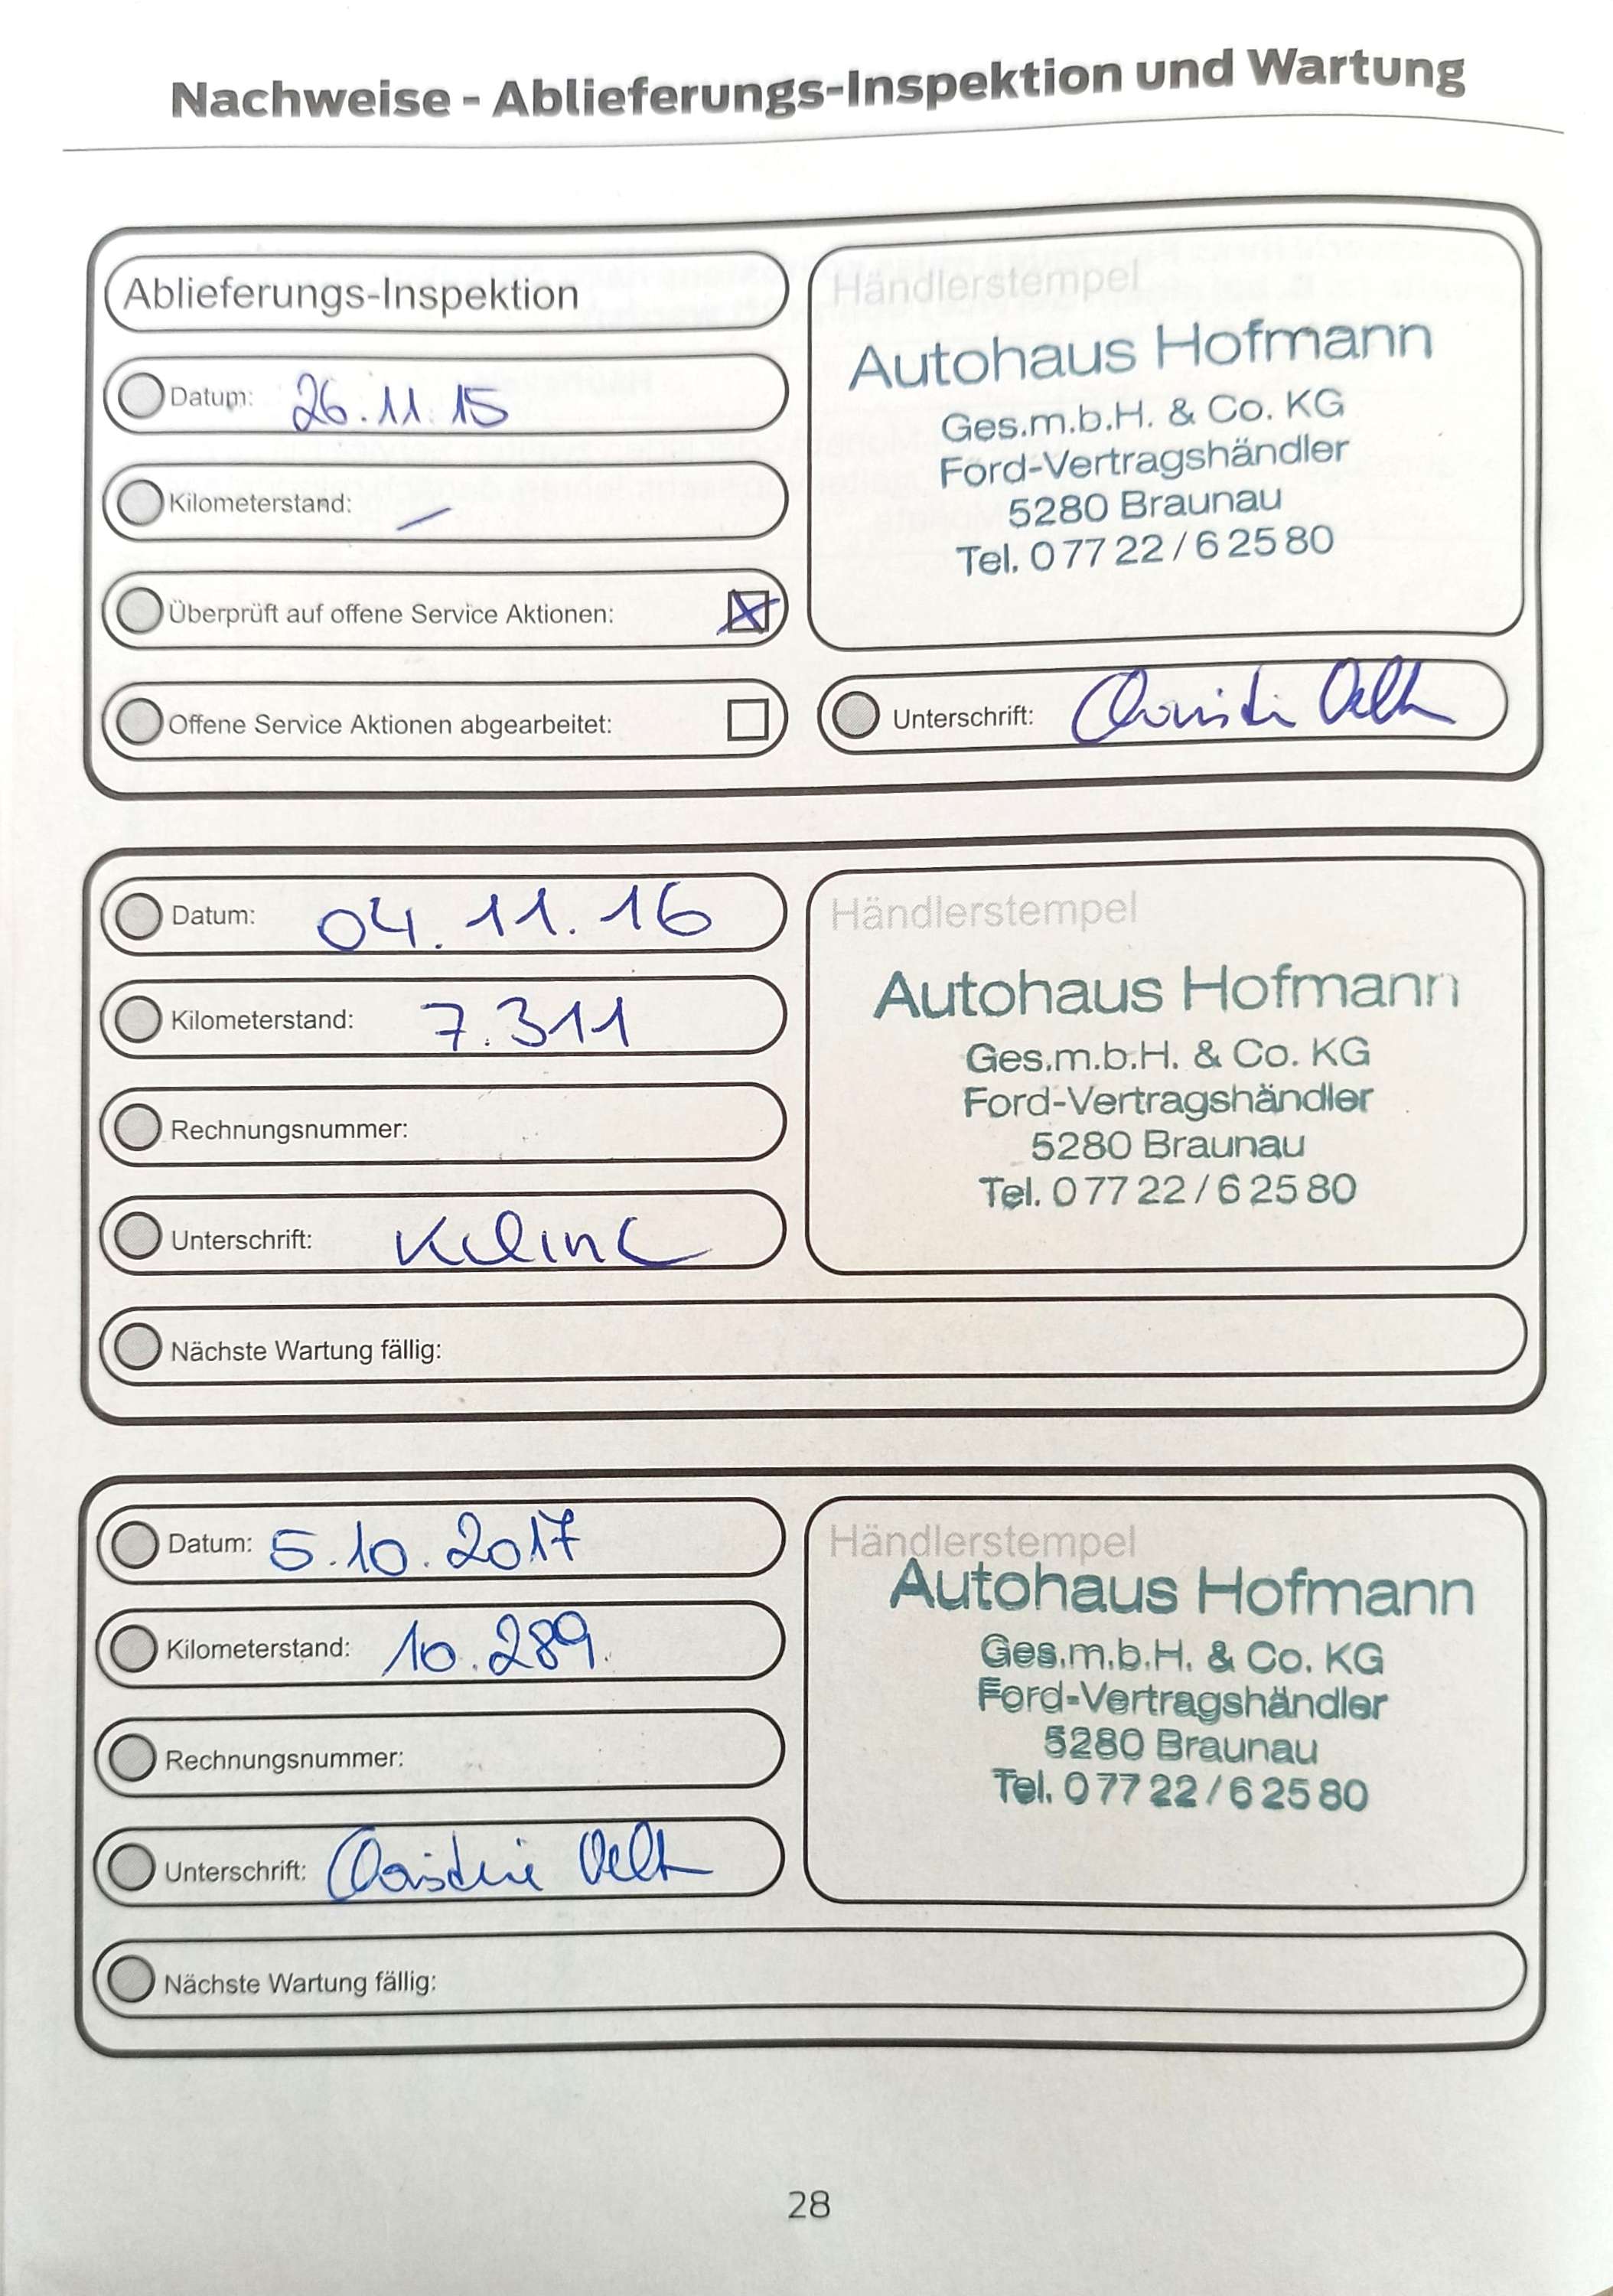 Nachweise - Ablieferungs-Inspektion und Wartung
Ablieferungs-Inspektion
Datum: 26.11.15
Kilometerstand: –
Überprüft auf offene Service Aktionen: X
Offene Service Aktionen abgearbeitet:
Händlerstempel
Autohaus Hofmann
Ges.m.b.H. & Co. KG
Ford-Vertragshändler
5280 Braunau
Tel. 0 77 22 / 6 25 80
Unterschrift:
Datum: 04.11.16
Kilometerstand: 7.311
Rechnungsnummer:
Unterschrift:
Händlerstempel
Autohaus Hofmann
Ges.m.b.H. & Co. KG
Ford-Vertragshändler
5280 Braunau
Tel. 0 77 22 / 6 25 80
Nächste Wartung fällig:
Datum: 5.10.2017
Kilometerstand: 10.289.
Rechnungsnummer:
Unterschrift: Christine
Händlerstempel
Autohaus Hofmann
Ges.m.b.H. & Co. KG
Ford-Vertragshändler
5280 Braunau
Tel. 0 77 22 / 6 25 80
Nächste Wartung fällig:
28